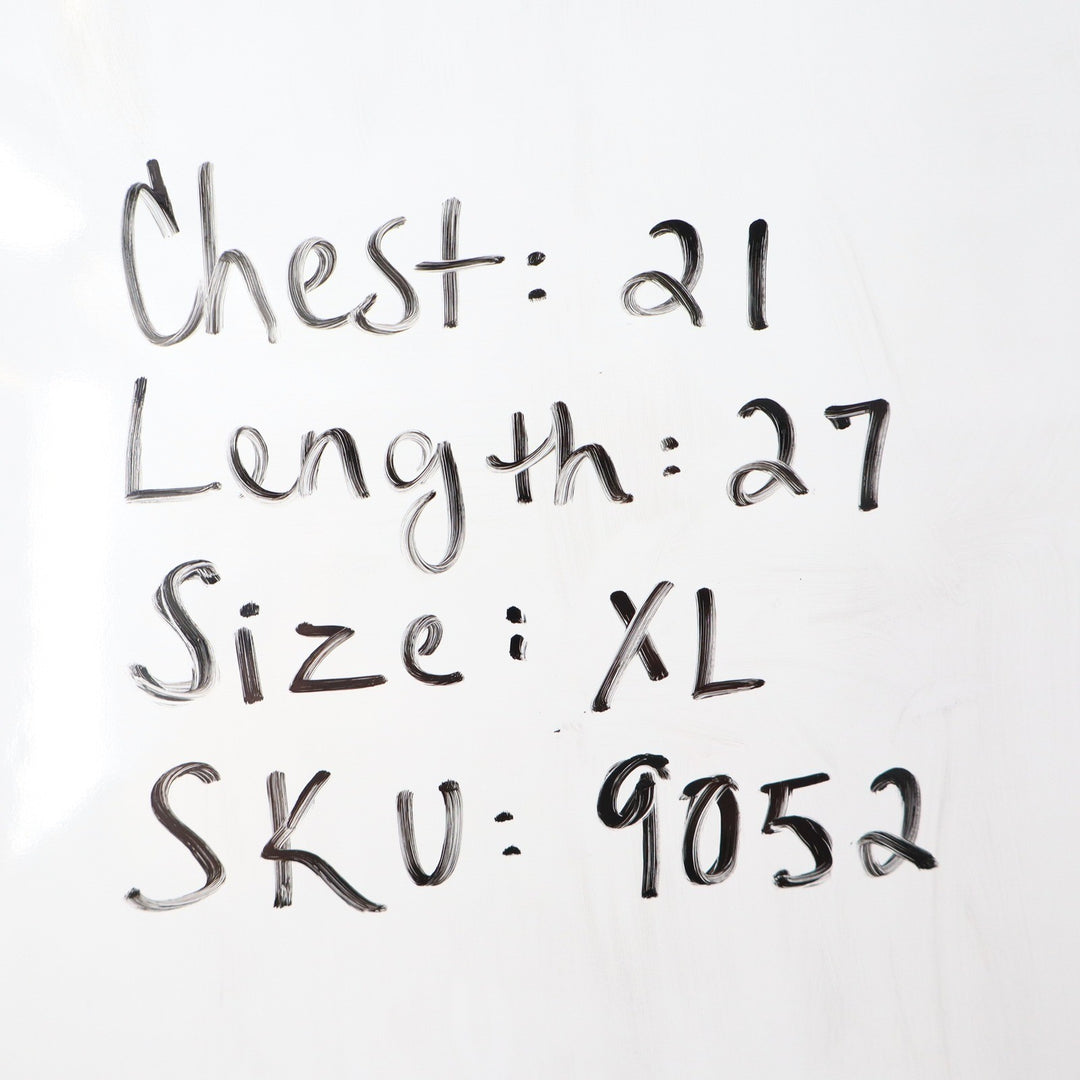 Chest: 21
Length: 27
Size: XL
SKU: 9052